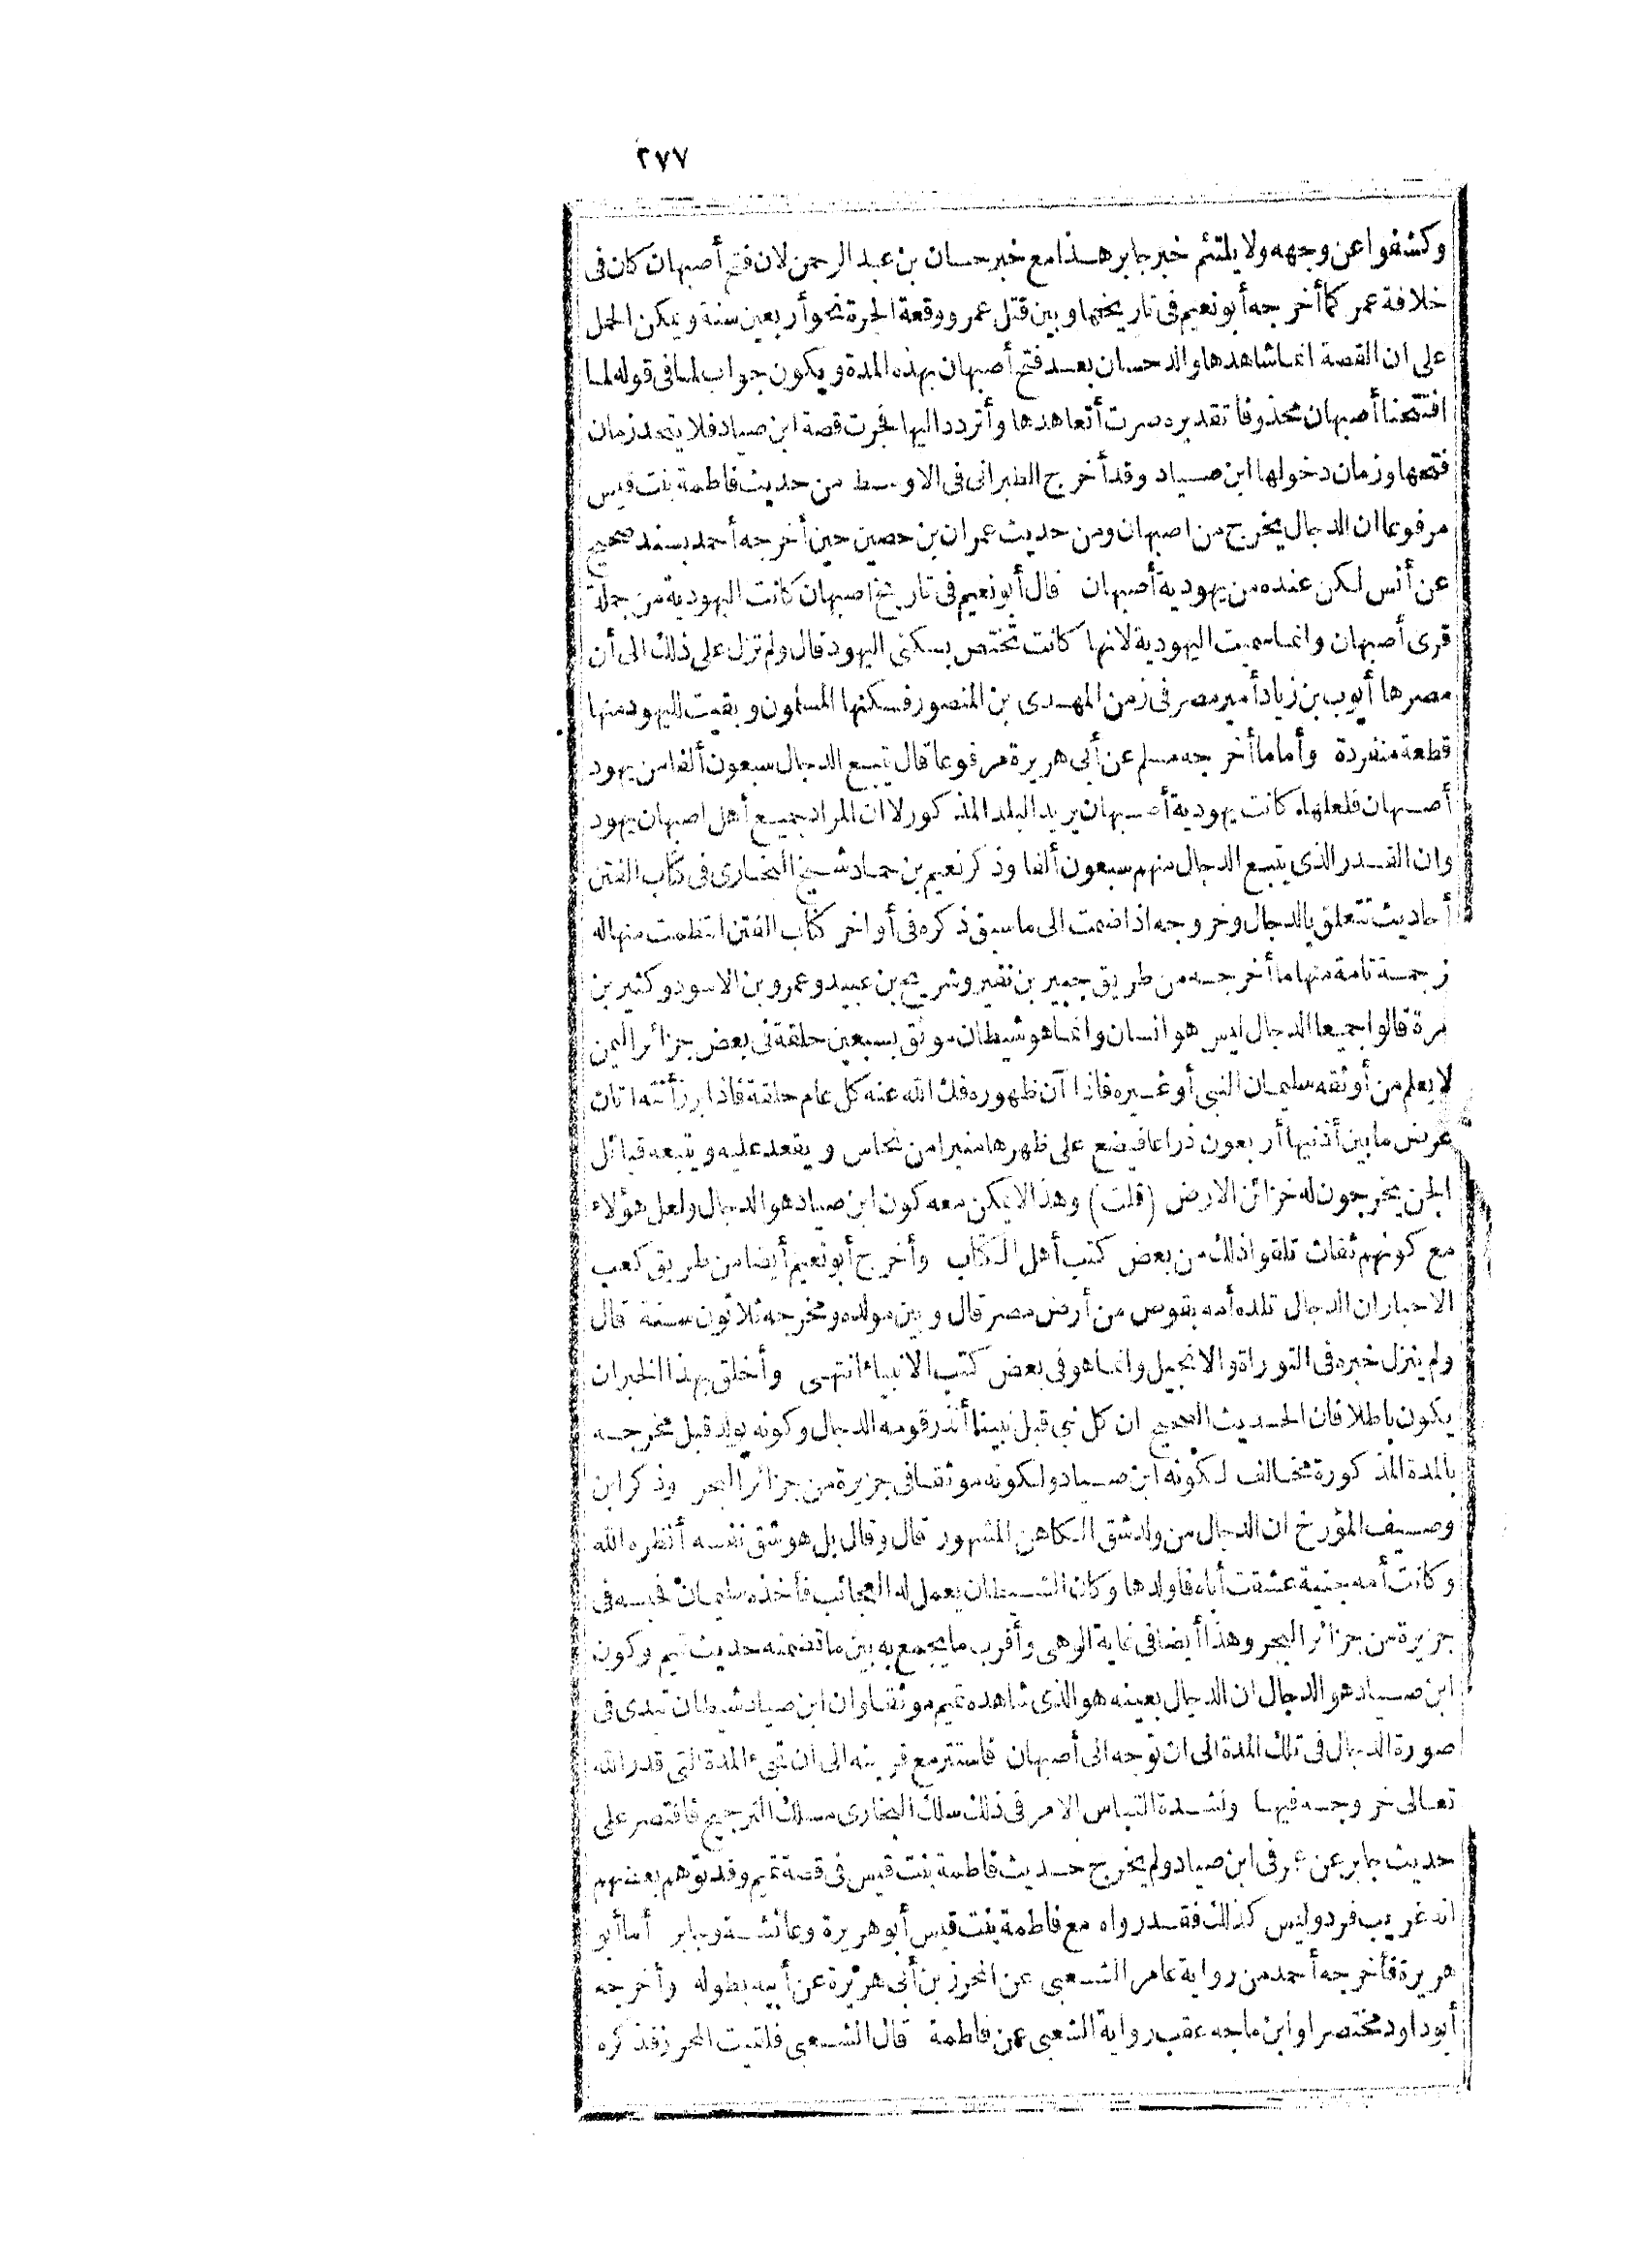 ٢٧٧
وكشفوا عن وجهه ولا يلتئم خبر جابر هذا مع خبر حسان بن عبد الرحمن لان فتح أصبهان كان فى
خلافة عمر كما أخرجه أبو نعيم فى تاريخها وبين قتل عمر ووقعة الحرة نحو أربعين سنة ويمكن الحمل
على ان القصة انما شاهدها والد حسان بعد فتح أصبهان بهذه المدة ويكون جواب لما فى قوله لما
افتتحنا أصبهان محذوفا تقديره صرت أتعاهدها وأتردد اليها فجرت قصة ابن صياد فلا يتحد زمان
فتحها وزمان دخولها ابن صياد وقد أخرج الطبرانى فى الاوسط من حديث فاطمة بنت قيس
مرفوعا ان الدجال يخرج من اصبهان ومن حديث عمران بن حصين حين أخرجه أحمد بسند صحيح
عن أنس لكن عنده من يهودية أصبهان قال أبو نعيم فى تاريخ اصبهان كانت اليهودية من جملة
قرى أصبهان وانما سميت اليهودية لانها كانت تختص بسكنى اليهود قال ولم تزل على ذلك الى أن
مصرها أيوب بن زياد أمير مصر فى زمن المهدى بن المنصور فسكنها المسلمون وبقيت لليهود منها
قطعة منفردة وأما ما أخرجه مسلم عن أبى هريرة مرفوعا قال يتبع الدجال سبعون ألفا من يهود
أصبهان فلعلها كانت يهودية أصبهان يريد البلد المذكور لا ان المراد جميع أهل اصبهان يهود
وان القدر الذى يتبع الدجال منهم سبعون ألفا وذكر نعيم بن حماد شيخ البخارى فى كتاب الفتن
أحاديث تتعلق بالدجال وخروجه اذا ضمت الى ما سبق ذكره فى أواخر كتاب الفتن انتظمت منها له
ترجمة تامة منها ما أخرجه من طريق جبير بن نفير وشريح بن عبيد وعمرو بن الاسود وكثير بن
مرة قالوا جميعا الدجال ليس هو انسان وانما هو شيطان موثق بسبعين حلقة فى بعض جزائر اليمن
لا يعلم من أوثقه سليمان النبى أو غيره فاذا آن ظهوره فك الله عنه كل عام حلقة فاذا برز أتته اتان
عرض ما بين أذنيها أربعون ذراعا فيضع على ظهرها منبرا من نحاس ويقعد عليه ويتبعه قبائل
الجن يخرجون له خزائن الارض (قلت) وهذا لا يمكن معه كون ابن صياد هو الدجال ولعل هؤلاء
مع كونهم ثقات تلقوا ذلك من بعض كتب أهل الكتاب وأخرج أبو نعيم أيضا من طريق كعب
الاحبار ان الدجال تلده أمه بقوص من أرض مصر قال وبين مولده ومخرجه ثلاثون سنة قال
ولم ينزل خبره فى التوراة والانجيل وانما هو فى بعض كتب الانبياء انتهى وأخلق بهذا الخبر ان
يكون باطلا فان الحديث الصحيح ان كل نبى قبل نبينا أنذر قومه الدجال وكونه يولد قبل مخرجه
بالمدة المذكورة مخالف لكونه ابن صياد ولكونه موثقا فى جزيرة من جزائر البحر وذكر ابن
وصيف المؤرخ ان الدجال من ولد شق الكاهن المشهور قال وقال بل هو شق نفسه أنظره الله
وكانت أمه جنية عشقت أباه فاولدها وكان الشيطان يعمل له العجائب فأخذه سليمان فحبسه فى
جزيرة من جزائر البحر وهذا أيضا فى غاية الوهى وأقرب ما يجمع به بين ما تضمنه حديث تميم وكون
ابن صياد هو الدجال ان الدجال بعينه هو الذى شاهده تميم موثقا وان ابن صياد شيطان تبدى فى
صورة الدجال فى تلك المدة الى ان توجه الى أصبهان فاستتر مع قرينه الى ان تجىء المدة التى قدر الله
تعالى خروجه فيها ولشدة التباس الامر فى ذلك سلك البخارى مسلك الترجيح فاقتصر على
حديث جابر عن عمر فى ابن صياد ولم يخرج حديث فاطمة بنت قيس فى قصة تميم وقد توهم بعضهم
انه غريب فرد وليس كذلك فقد رواه مع فاطمة بنت قيس أبو هريرة وعائشة وجابر أما أبو
هريرة فأخرجه أحمد من رواية عامر الشعبى عن المحرز بن أبى هريرة عن أبيه بطوله وأخرجه
أبو داود مختصرا وابن ماجه عقب رواية الشعبى عن فاطمة قال الشعبى فلقيت المحرز فذكره